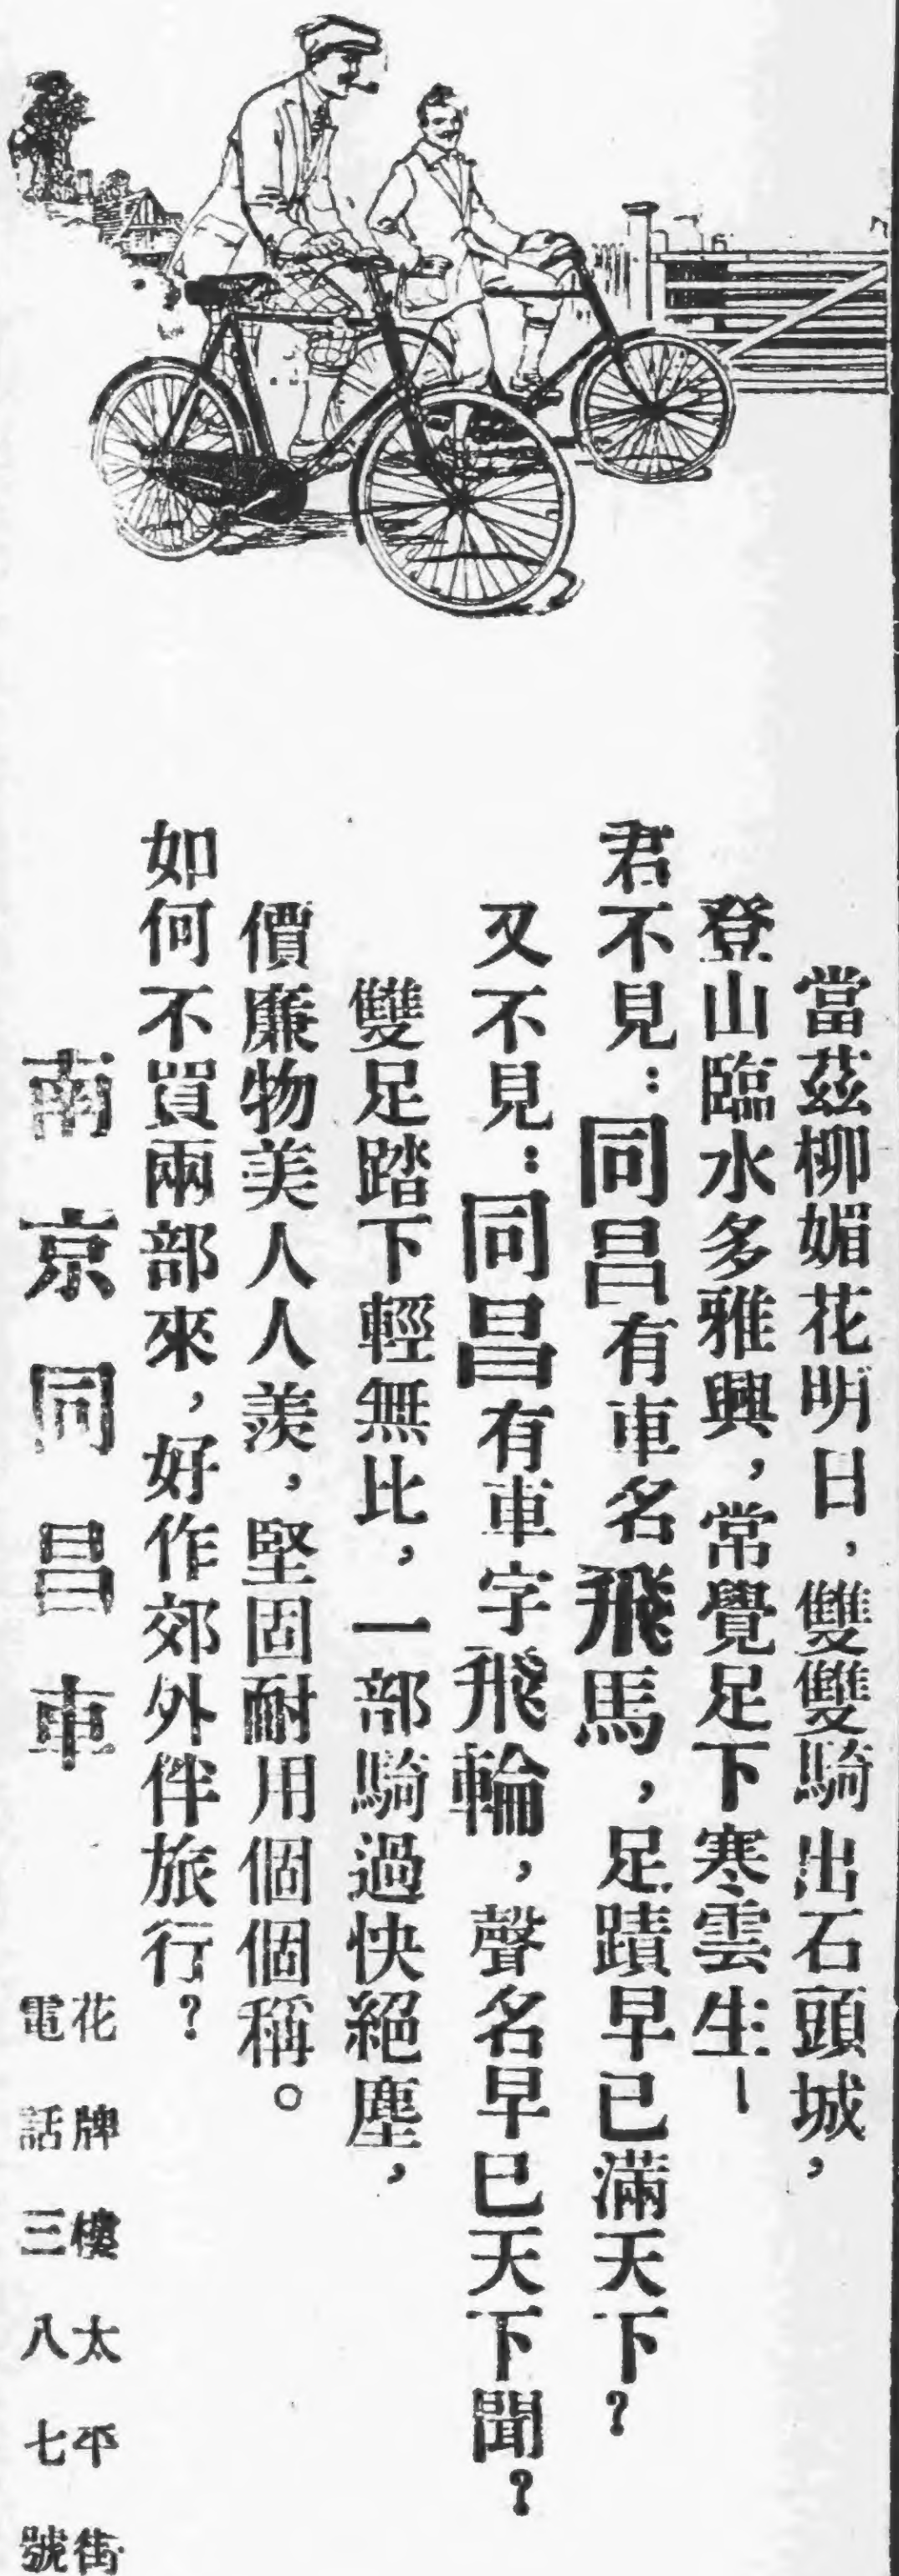 當茲柳媚花明日，雙雙騎出石頭城，
登山臨水多雅興，常覺足下寒雲生—
君不見：同昌有車名飛馬，足蹟早已滿天下？
又不見：同昌有車字飛輪，聲名早已天下聞？
雙足踏下輕無比，一部騎過快絕塵，
價廉物美人人羨，堅固耐用個個稱。
如何不買兩部來，好作郊外伴旅行？
南京同昌車
花牌樓太平街
電話三八七號